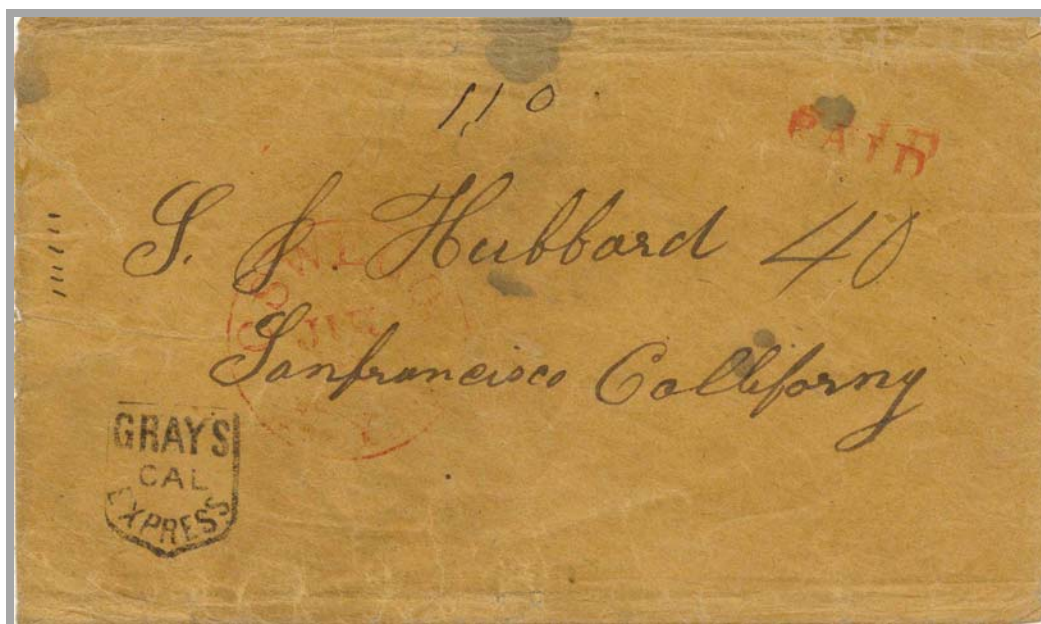 110
PAID
S. J. Hubbard 40
Sanfrancisco Calliforny
GRAY'S
CAL
EXPRESS